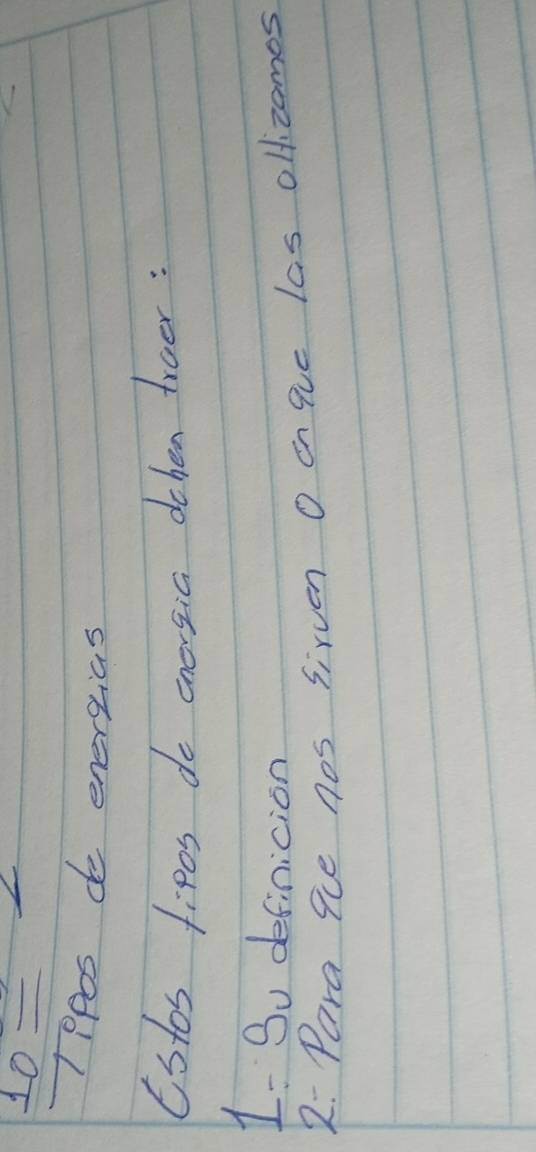 10=
Tipos de energias
Estos tipos de energia deben traer:
1- Su definición
2- Para que nos sirven o en que las utilizamos